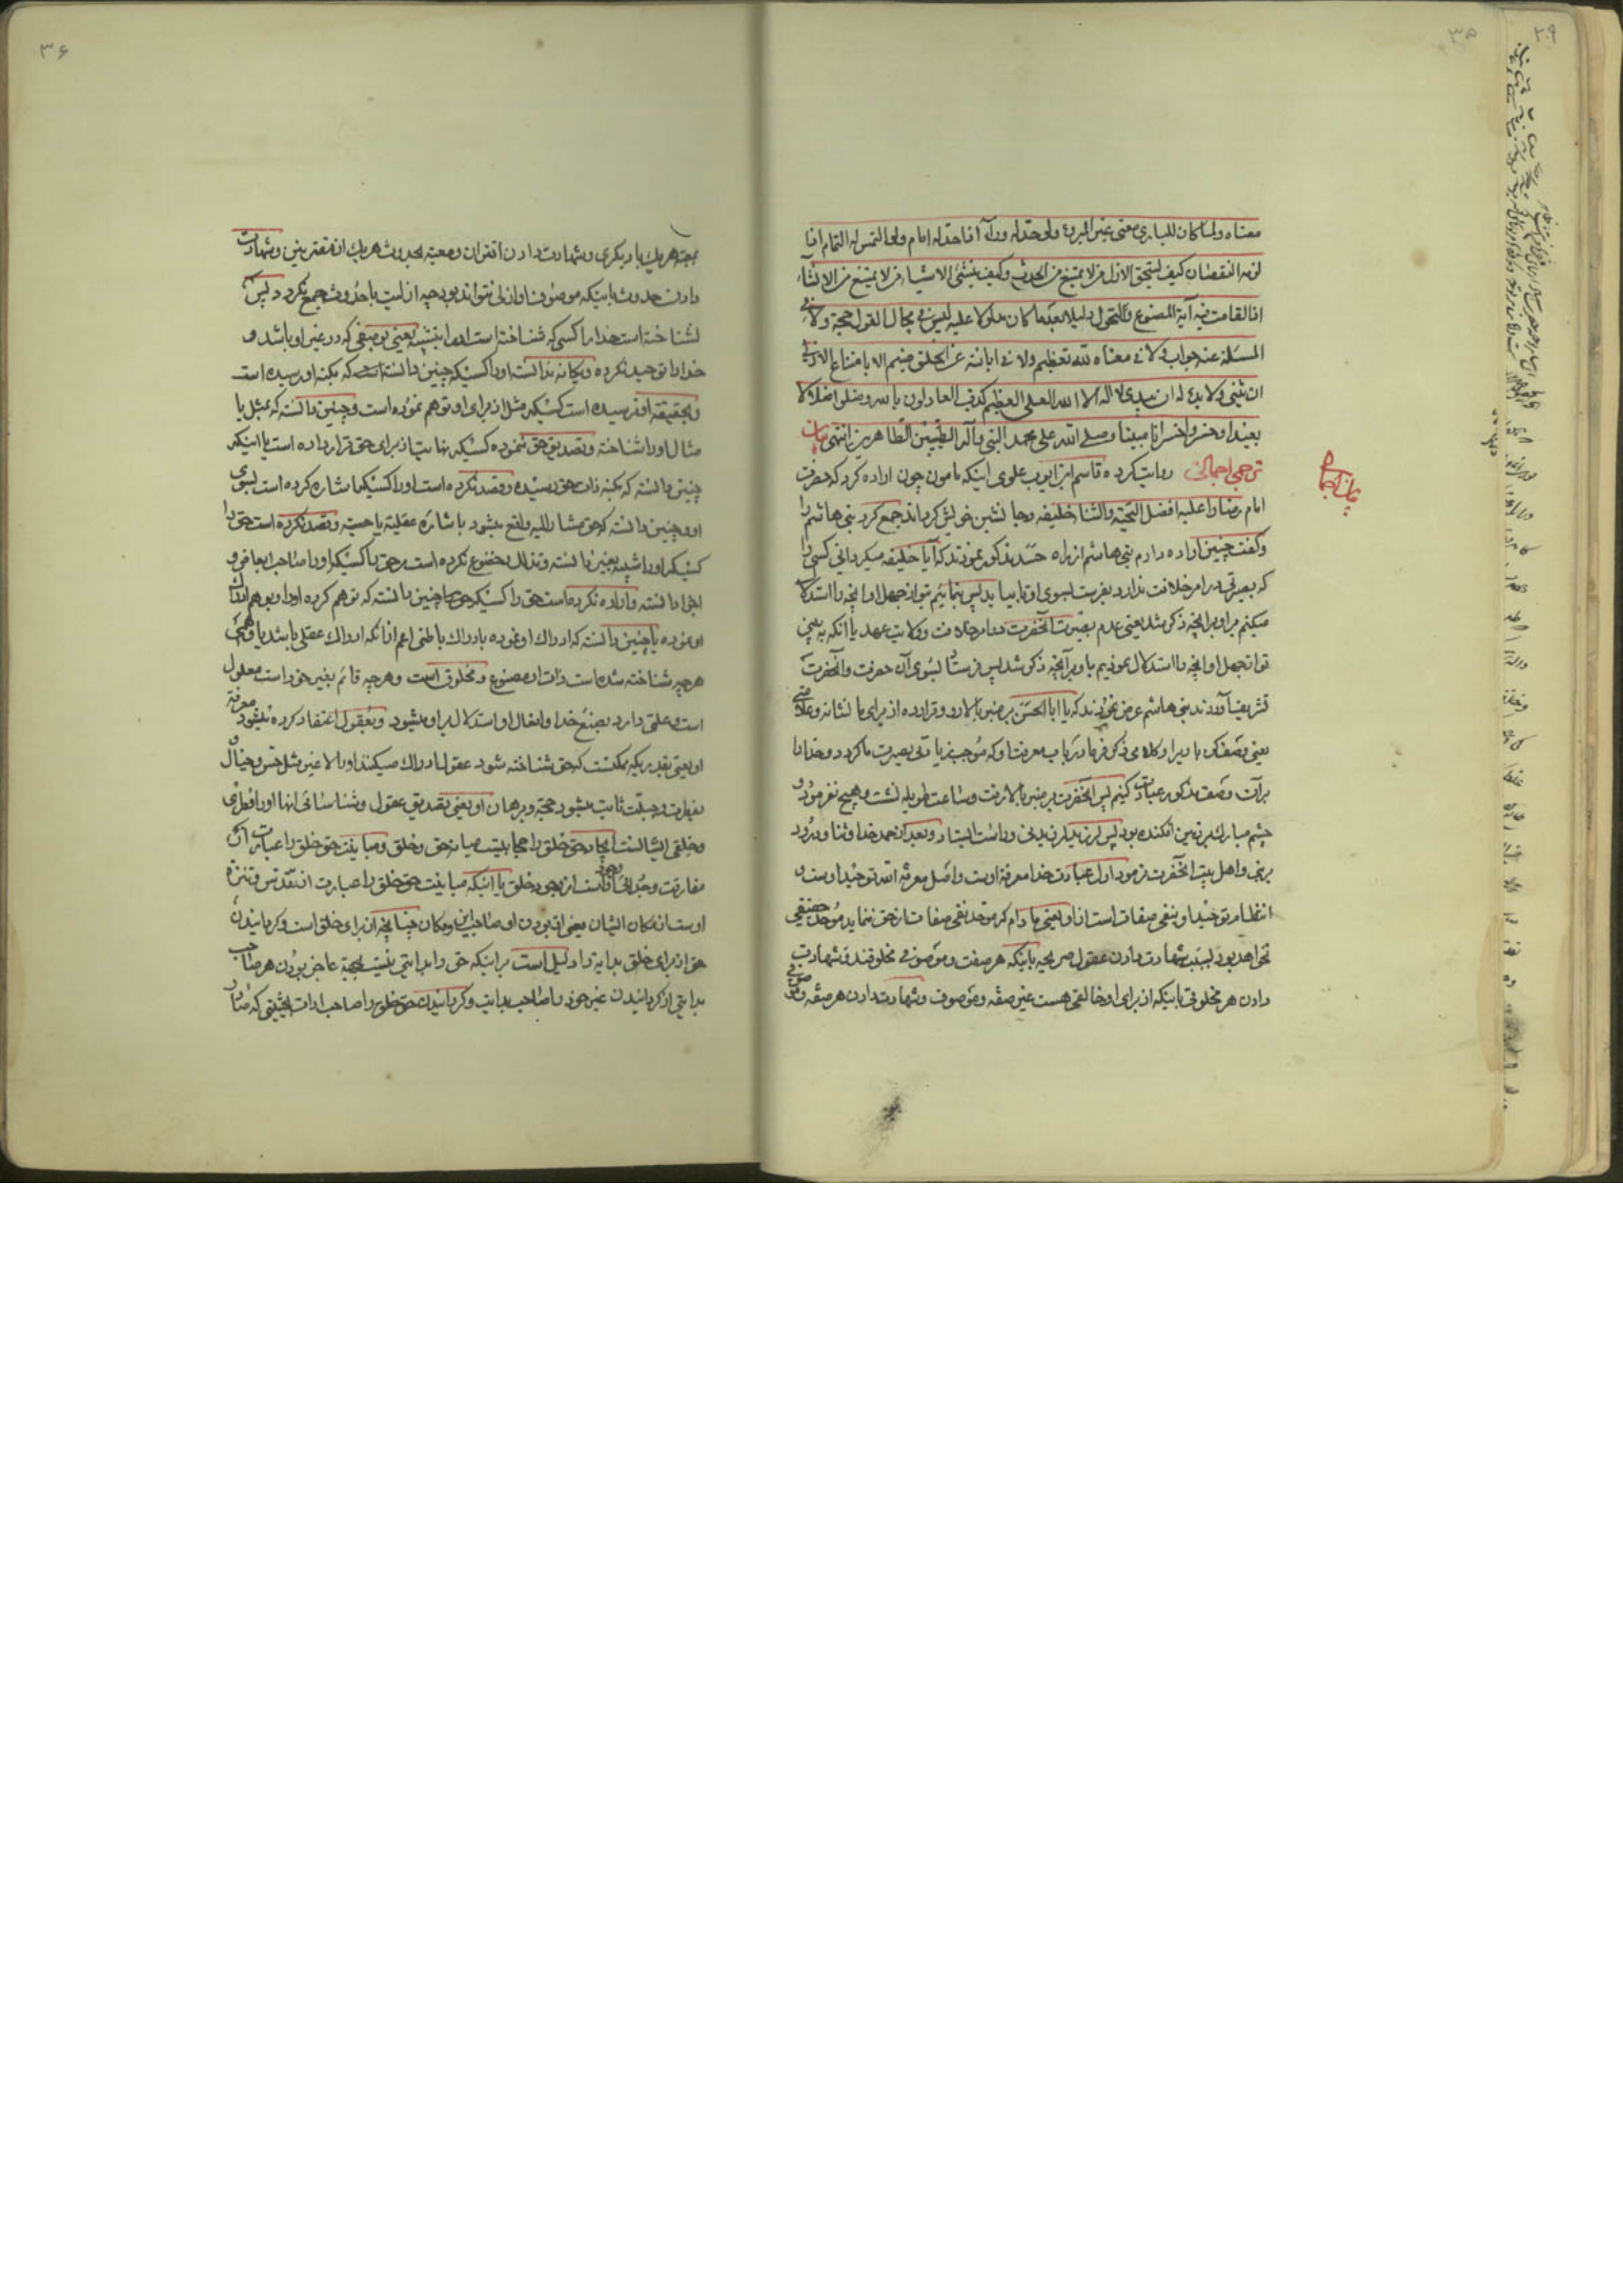 ۳۵
معناه ولما كان للباری معنی غیر المبروء ولو حد له وراء اذا حد له امام ولو التمس له التمام اذا
لزمه النقصان كیف یستحق الازل من لا یمتنع من الحدث وكیف ینشئ الاشیاء من لا یمتنع من الانشاء
اذا لقامت فیه آیة المصنوع ولتحول دلیلا بعد ما كان مدلولا علیه لیس فی مجال القول حجة ولا فی
المسئلة عنه جواب ولا فی معناه لله تعظیم ولا فی ابانته عن الخلق ضیم الا بامتناع الازلی
ان یثنی ولا بدء له ان یبدی لا اله الا الله العلی العظیم كذب العادلون بالله وضلوا ضلالا
بعیدا وخسروا خسرانا مبینا وصلی الله علی محمد النبی وآله الطیبین الطاهرین انتهی بیان
ترجمه اجمالی روایت كرده قاسم ابن ایوب علوی اینكه مامون چون اراده كرد كه حضرت
امام رضا را علیه افضل التحیة والثنا خلیفه وجانشین خویش گرداند جمع كرد بنی هاشم را
وگفت چنین اراده دارم بنی هاشم از راه حسد مذكور نمودند كه آیا خلیفه میگردانی كسی را
كه بصیرتی در امر خلافت ندارد بفرست بسوی او تا بیاید پس بنمائیم تو از جهل او آنچه را استدلال
میكنم براو برآنچه ذكر شد یعنی عدم بصیرت آنحضرت در امر خلافت وولایت عهد یا آنكه به بینی
تو از جهل او آنچه را استدلال نمودیم باو برآنچه ذكر شد پس فرستاد بسوی آن حضرت وآنحضرت
تشریف آوردند بنی هاشم عرض نمودند كه یا ابا الحسن بر منبر بالا رو وقرار ده از برای ما نشانه وعلامتی
یعنی وصف كن ما را وكلامی ذكر فرما در باب معرفت او كه موجب زیادتی بصیرت ما گردد وخدا را
بر آن وصف مذكور عبادت كنیم پس آنحضرت بر منبر بالا رفت وساعت طویله نشست وهیچ نفرمود و
چشم مبارك بر زمین افكنده بود پس لرزید لرزیدنی وراست ایستاد وبعد از حمد خدا وثنا ودرود
بر نبی واهل بیت آنحضرت فرمود اول عبادت خدا معرفة اوست واصل معرفة الله توحید اوست و
انتظام توحید او بنفی صفات است از او یعنی مادام كه موحد نفی صفات از حق ننماید موحد حقیقی
نخواهد بود بسبب شهادت دادن عقول صریحه باینكه هر صفت وموصوفی مخلوقند وشهادت
دادن هر مخلوقی باینكه از برای او خالقی هست غیر صفه وموصوف وشهادت دادن هر صفه وموصوفی
۳۶
بمعیة هر یك با دیگری وشهادت دادن اقتران ومعیة بحدوث هر یك از مقترنین وشهادت
دادن حدوث باینكه موصوف او ازلی نتواند بود چه ازلیت با حدوث جمع نگردد پس
نشناخته است خدا را كسی كه شناخته است او را بتشبیه یعنی بوصفی كه در غیر او باشد و
خدا را توحید نكرده ویگانه ندانسته او را كسیكه چنین دانسته است كه بكنه او رسیده است
وبحقیقة او نرسیده است كسیكه مثل از برای او توهم نموده است وچنین دانسته كه بمثل یا
مثال او را شناخته وتصدیق حق ننموده كسیكه نهایت از برای حق قرار داده است یا اینكه
چنین دانسته كه بكنه ذات حق رسیده وقصد نكرده است او را كسیكه اشاره كرده است بسوی
او وچنین دانسته كه حق مشار الیه واقع میشود باشاره عقلیة یا حسیة وقصد نكرده است حق را
كسیكه او را شبیه بغیر دانسته وتذلل وخضوع نكرده است حق را كسیكه او را صاحب ابعاض و
اجزا دانسته واراده نكرده است حق را كسیكه چنین دانسته كه توهم كرده او را وبوهم ادراك
او نموده یا چنین دانسته كه ادراك او نموده بادراك باطنی اعم از آنكه ادراك عقلی باشد یا وهمی
هر چه شناخته شده است ذات او مصنوع ومخلوق است وهر چه قائم بغیر خود است معلول
است وعلتی دارد بصنع خدا وافعال او استدلال بر او میشود وبعقول اعتقاد كرده میشود معرفة
او یعنی بقدریكه ممكنست كه حق شناخته شود عقول ادراك میكنند او را لا غیر مثل حس وخیال و
بفطرت وجبلت ثابت میشود حجة وبرهان او یعنی تصدیق عقول وشناسائی آنها او را فطری
وخلقی ایشانست ایجاد حق خلق را حجابیست میانه حق وخلق ومباینت حق خلق را عبارت از
مفارقت وجدائی اوست از وجود خلق یا اینكه مباینت حق خلق را عبارت از تقدس وتنزه
اوست از مكان ایشان یعنی از بودن او صاحب این ومكان چنانچه از برای خلق است وگردانیدن
حق از برای خلق بدایة را دلیل است بر اینكه حق را بدایتی نیست بجهة عاجز بودن هر صاحب
بدایتی از گردانیدن غیر خود را صاحب بدایت وگردانیدن حق خلق را صاحب ادوات بحیثیتی كه